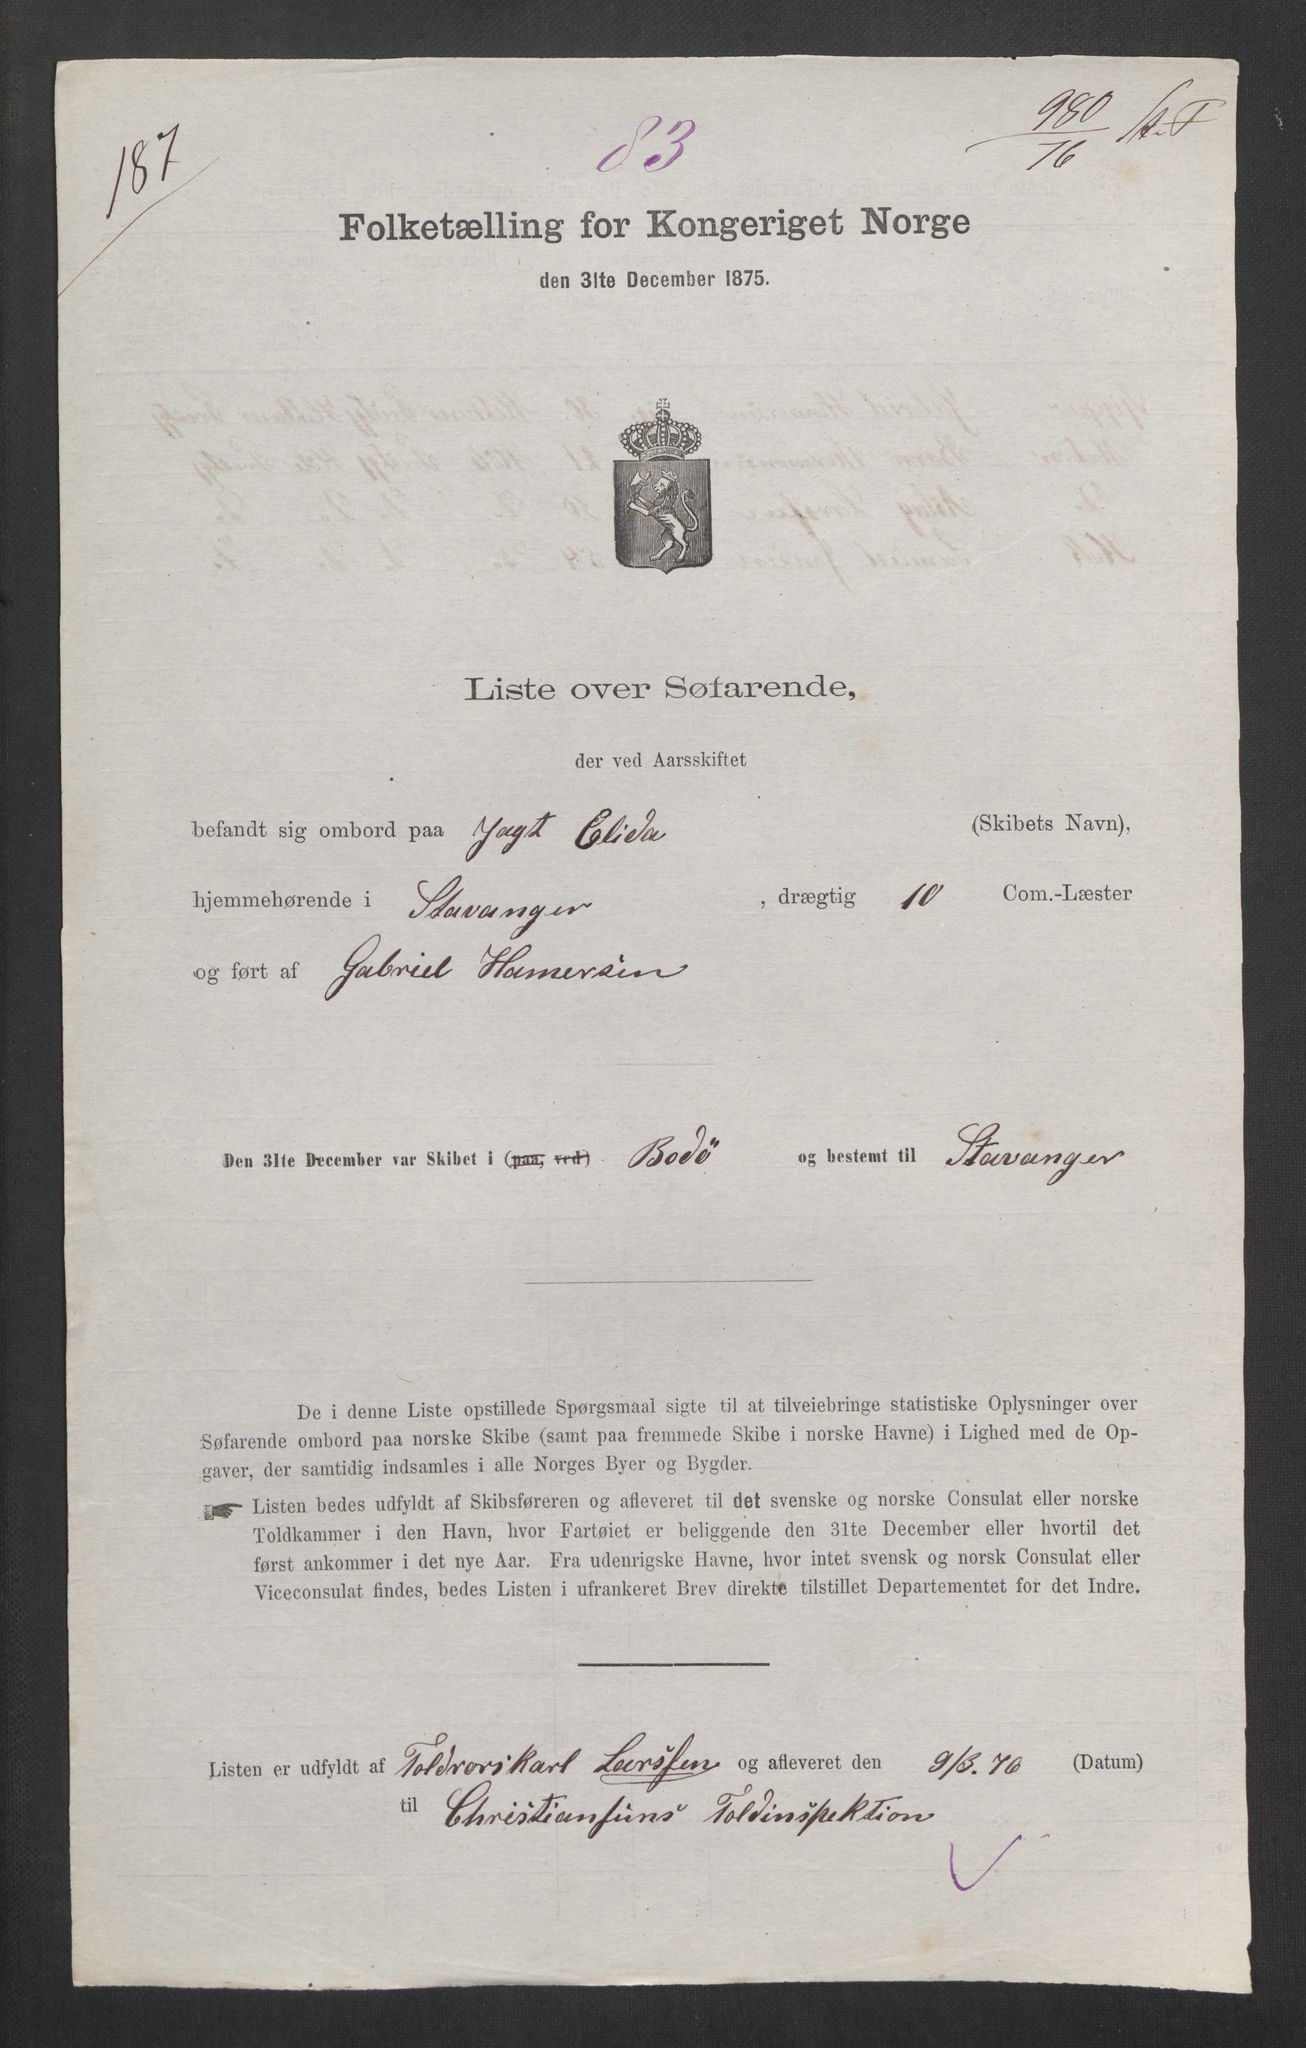 187
83
980
76
Folketælling for Kongeriget Norge
den 31te December 1875.
Liste over Søfarende,
der ved Aarsskiftet
befandt sig ombord paa Jagt Elida (Skibets Navn),
hjemmehørende i Stavanger , drægtig 10 Com.-Læster
og ført af Gabriel Hamersen
Den 31te December var Skibet i (paa, ved) Bodö og bestemt til Stavanger
De i denne Liste opstillede Spørgsmaal sigte til at tilveiebringe statistiske Oplysninger over
Søfarende ombord paa norske Skibe (samt paa fremmede Skibe i norske Havne) i Lighed med de Op-
gaver, der samtidig indsamles i alle Norges Byer og Bygder.
☛ Listen bedes udfyldt af Skibsføreren og afleveret til det svenske og norske Consulat eller norske
Toldkammer i den Havn, hvor Fartøiet er beliggende den 31te December eller hvortil det
først ankommer i det nye Aar. Fra udenrigske Havne, hvor intet svensk og norsk Consulat eller
Viceconsulat findes, bedes Listen i ufrankeret Brev direkte tilstillet Departementet for det Indre.
Listen er udfyldt af Toldrorskarl Larssen og afleveret den 9/3. 76 (Datum)
til Christiansuns Toldinspektion